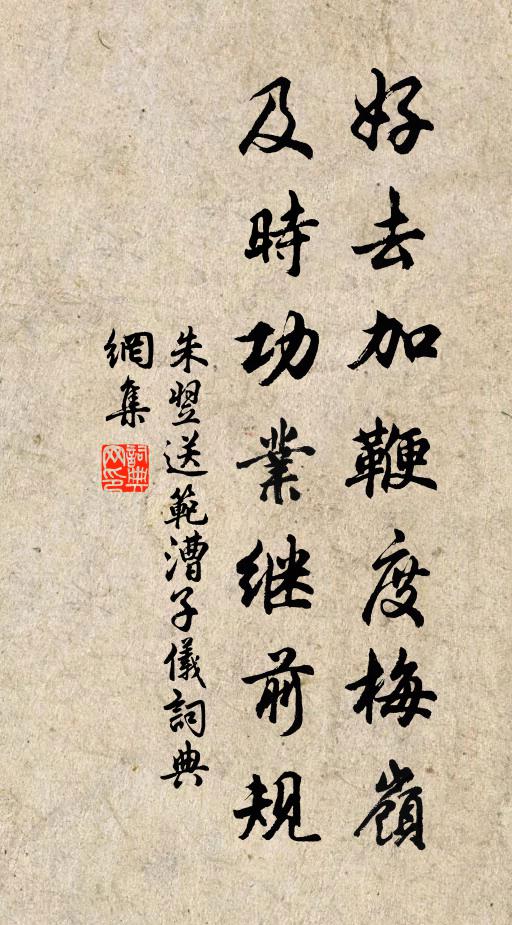 好去加鞭度梅嶺
及時功業继前规
朱翌送範漕子儀詞典
網集
詞典网印